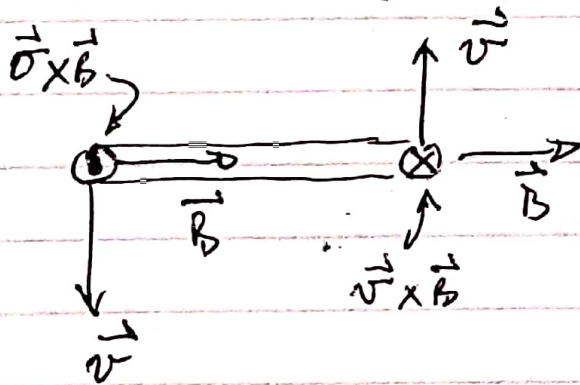 v⃗ × B⃗
v⃗
B⃗
B⃗
v⃗ × B⃗
v⃗